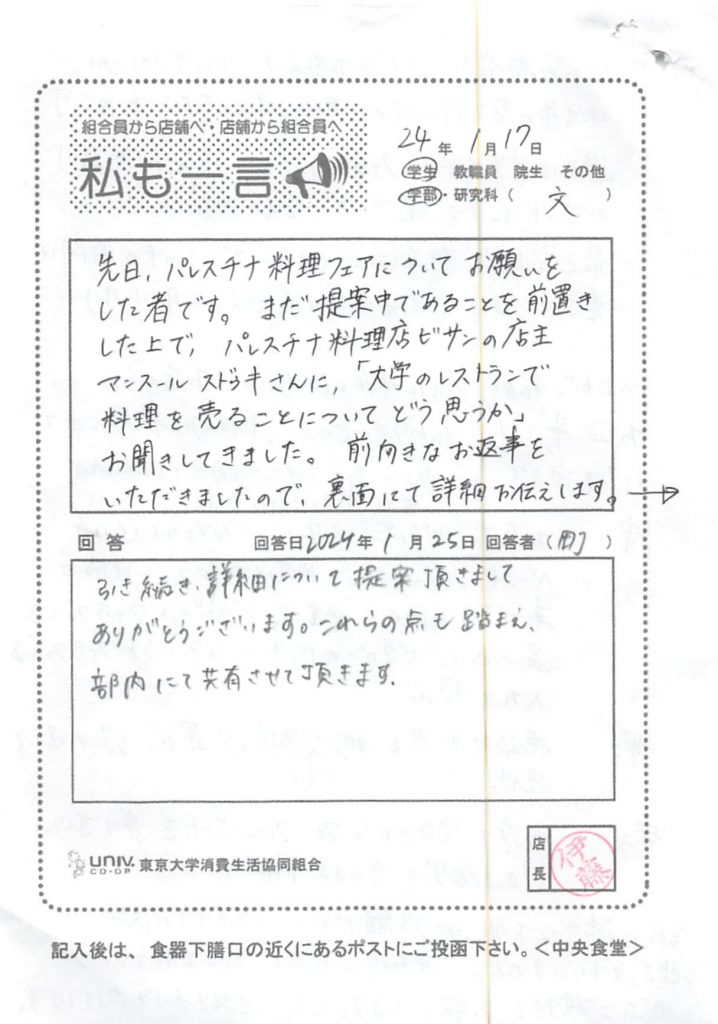 組合員から店舗へ・店舗から組合員へ
私も一言
24年 1月17日
学生 教職員 院生 その他
学部・研究科（ 文 ）
先日、パレスチナ料理フェアについてお願いを
した者です。まだ提案中であることを前置き
した上で、パレスチナ料理店ビサンの店主
マンスール スドゥキさんに、「大学のレストランで
料理を売ることについてどう思うか」
お聞きしてきました。前向きなお返事を
いただきましたので、裏面にて詳細お伝えします。→
回答 回答日2024年 1月25日 回答者（ ）
引き続き、詳細について提案頂きまして
ありがとうございます。これらの点も踏まえ、
部内にて共有させて頂きます。
UNIV. CO-OP 東京大学消費生活協同組合
店長 伊藤
記入後は、食器下膳口の近くにあるポストにご投函下さい。＜中央食堂＞